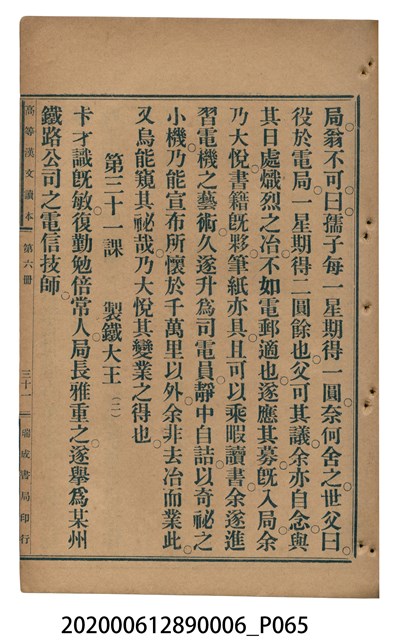 局翁不可曰孺子每一星期得一圓奈何舍之世父曰
役於電局一星期得二圓餘也父可其議余亦自念與
其日處熾烈之冶不如電郵適也遂應其募既入局余
乃大悅書籍既夥筆紙亦具且可以乘暇讀書余遂進
習電機之藝術久遂升爲司電員靜中自詰以奇祕之
小機乃能宣布所懷於千萬里以外余非去冶而業此
又烏能窺其祕哉乃大悅其變業之得也
第三十一課 製鐵大王(二)
卡才識既敏復勤勉倍常人局長雅重之遂舉爲某州
鐵路公司之電信技師
高等漢文讀本 第六册 三十一 瑞成書局印行
202000612890006_P065